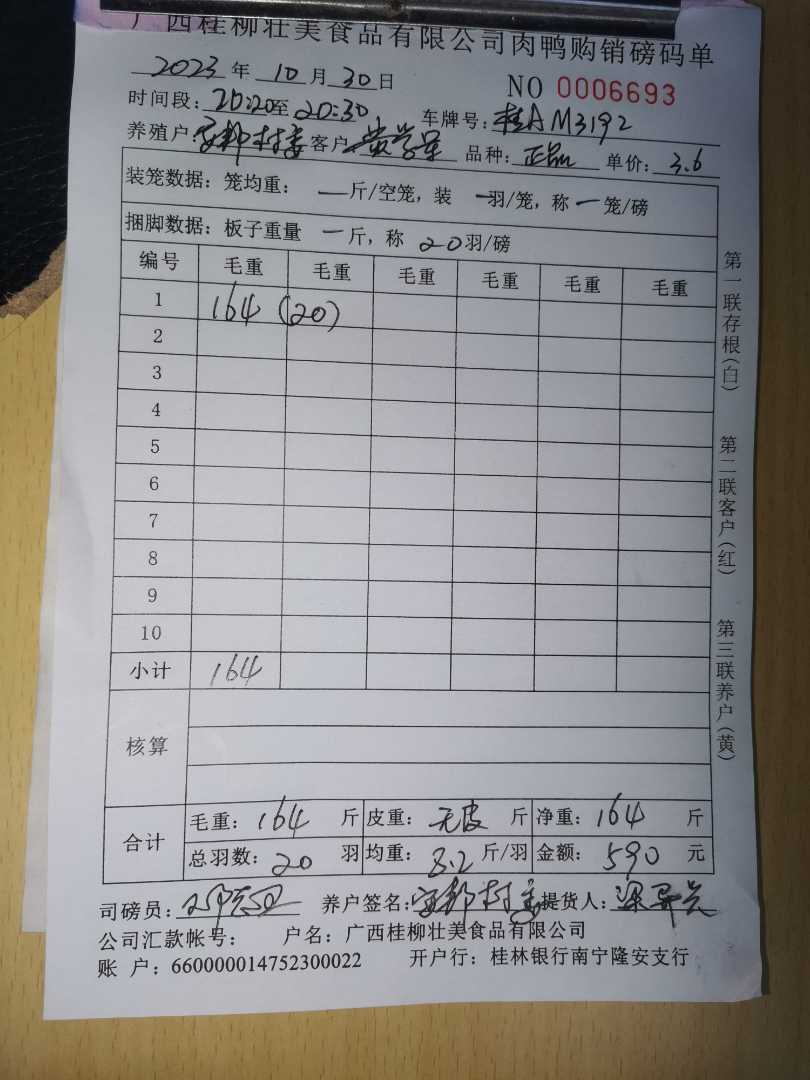 广西桂柳壮美食品有限公司肉鸭购销磅码单
2023年 10月 30日 NO 0006693
时间段：20:20至20:30 车牌号：桂AM3192
养殖户：安都村委 客户：黄学星 品种：正品 单价：3.6
装笼数据：笼均重：一斤/空笼，装一羽/笼，称一笼/磅
捆脚数据：板子重量一斤，称20羽/磅
编号 毛重 毛重 毛重 毛重 毛重 毛重
1 164 (20)
2
3
4
5
6
7
8
9
10
小计 164
核算
合计 毛重：164斤 皮重：无皮斤 净重：164斤
总羽数：20羽 均重：8.2斤/羽 金额：590元
司磅员： 养户签名：安都村委 提货人：
公司汇款帐号： 户名：广西桂柳壮美食品有限公司
账 户：660000014752300022 开户行：桂林银行南宁隆安支行
第一联存根（白）
第二联客户（红）
第三联养户（黄）